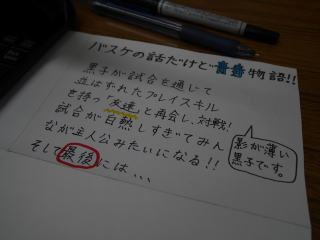 バスケの話だけど青春物語!!
黒子が試合を通じて
並はずれたプレイスキル
を持つ「友達」と再会し、対戦!
試合が白熱しすぎてみん
なが主人公みたいになる!!
そして最後には...
影が薄い
黒子です。